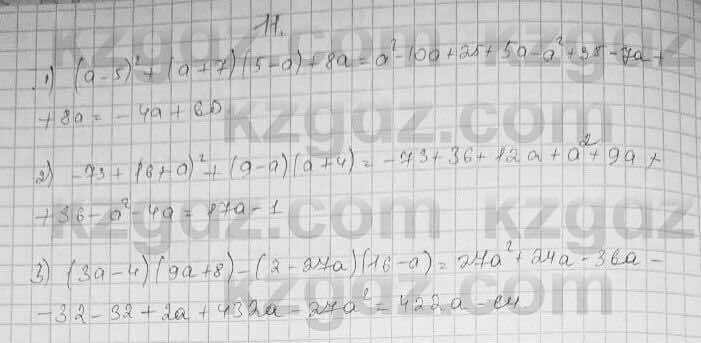 11.
1) (a-5)² + (a+7)(5-a)+8a = a²-10a+25+5a-a²+35-7a+
+8a = -4a+60
2) -73+(6+a)²+(9-a)(a+4) = -73+36+12a+a²+9a+
+36-a²-4a = 17a-1
3) (3a-4)(9a+8)-(2-27a)(16-a) = 27a²+24a-36a-
-32-32+2a+432a-27a² = 422a-64
kzgdz.com
kzgdz.com
kzgdz.com
kzgdz.com